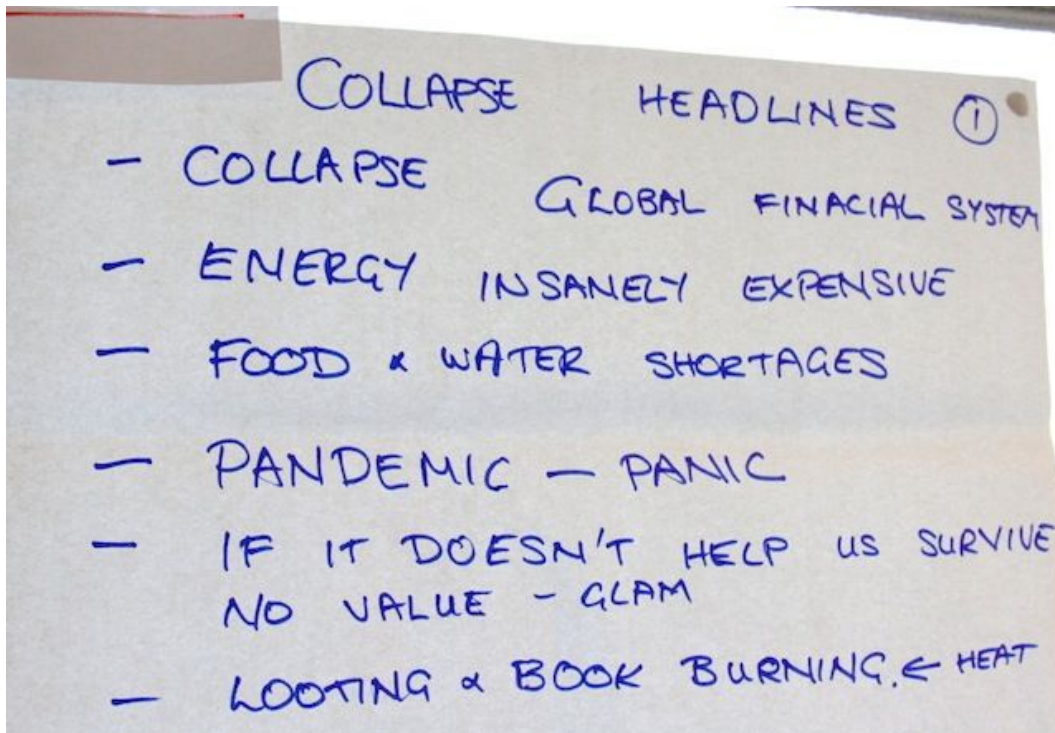 COLLAPSE HEADLINES ①
- COLLAPSE GLOBAL FINACIAL SYSTEM
- ENERGY INSANELY EXPENSIVE
- FOOD & WATER SHORTAGES
- PANDEMIC - PANIC
- IF IT DOESN'T HELP US SURVIVE
NO VALUE - GLAM
- LOOTING & BOOK BURNING. ← HEAT